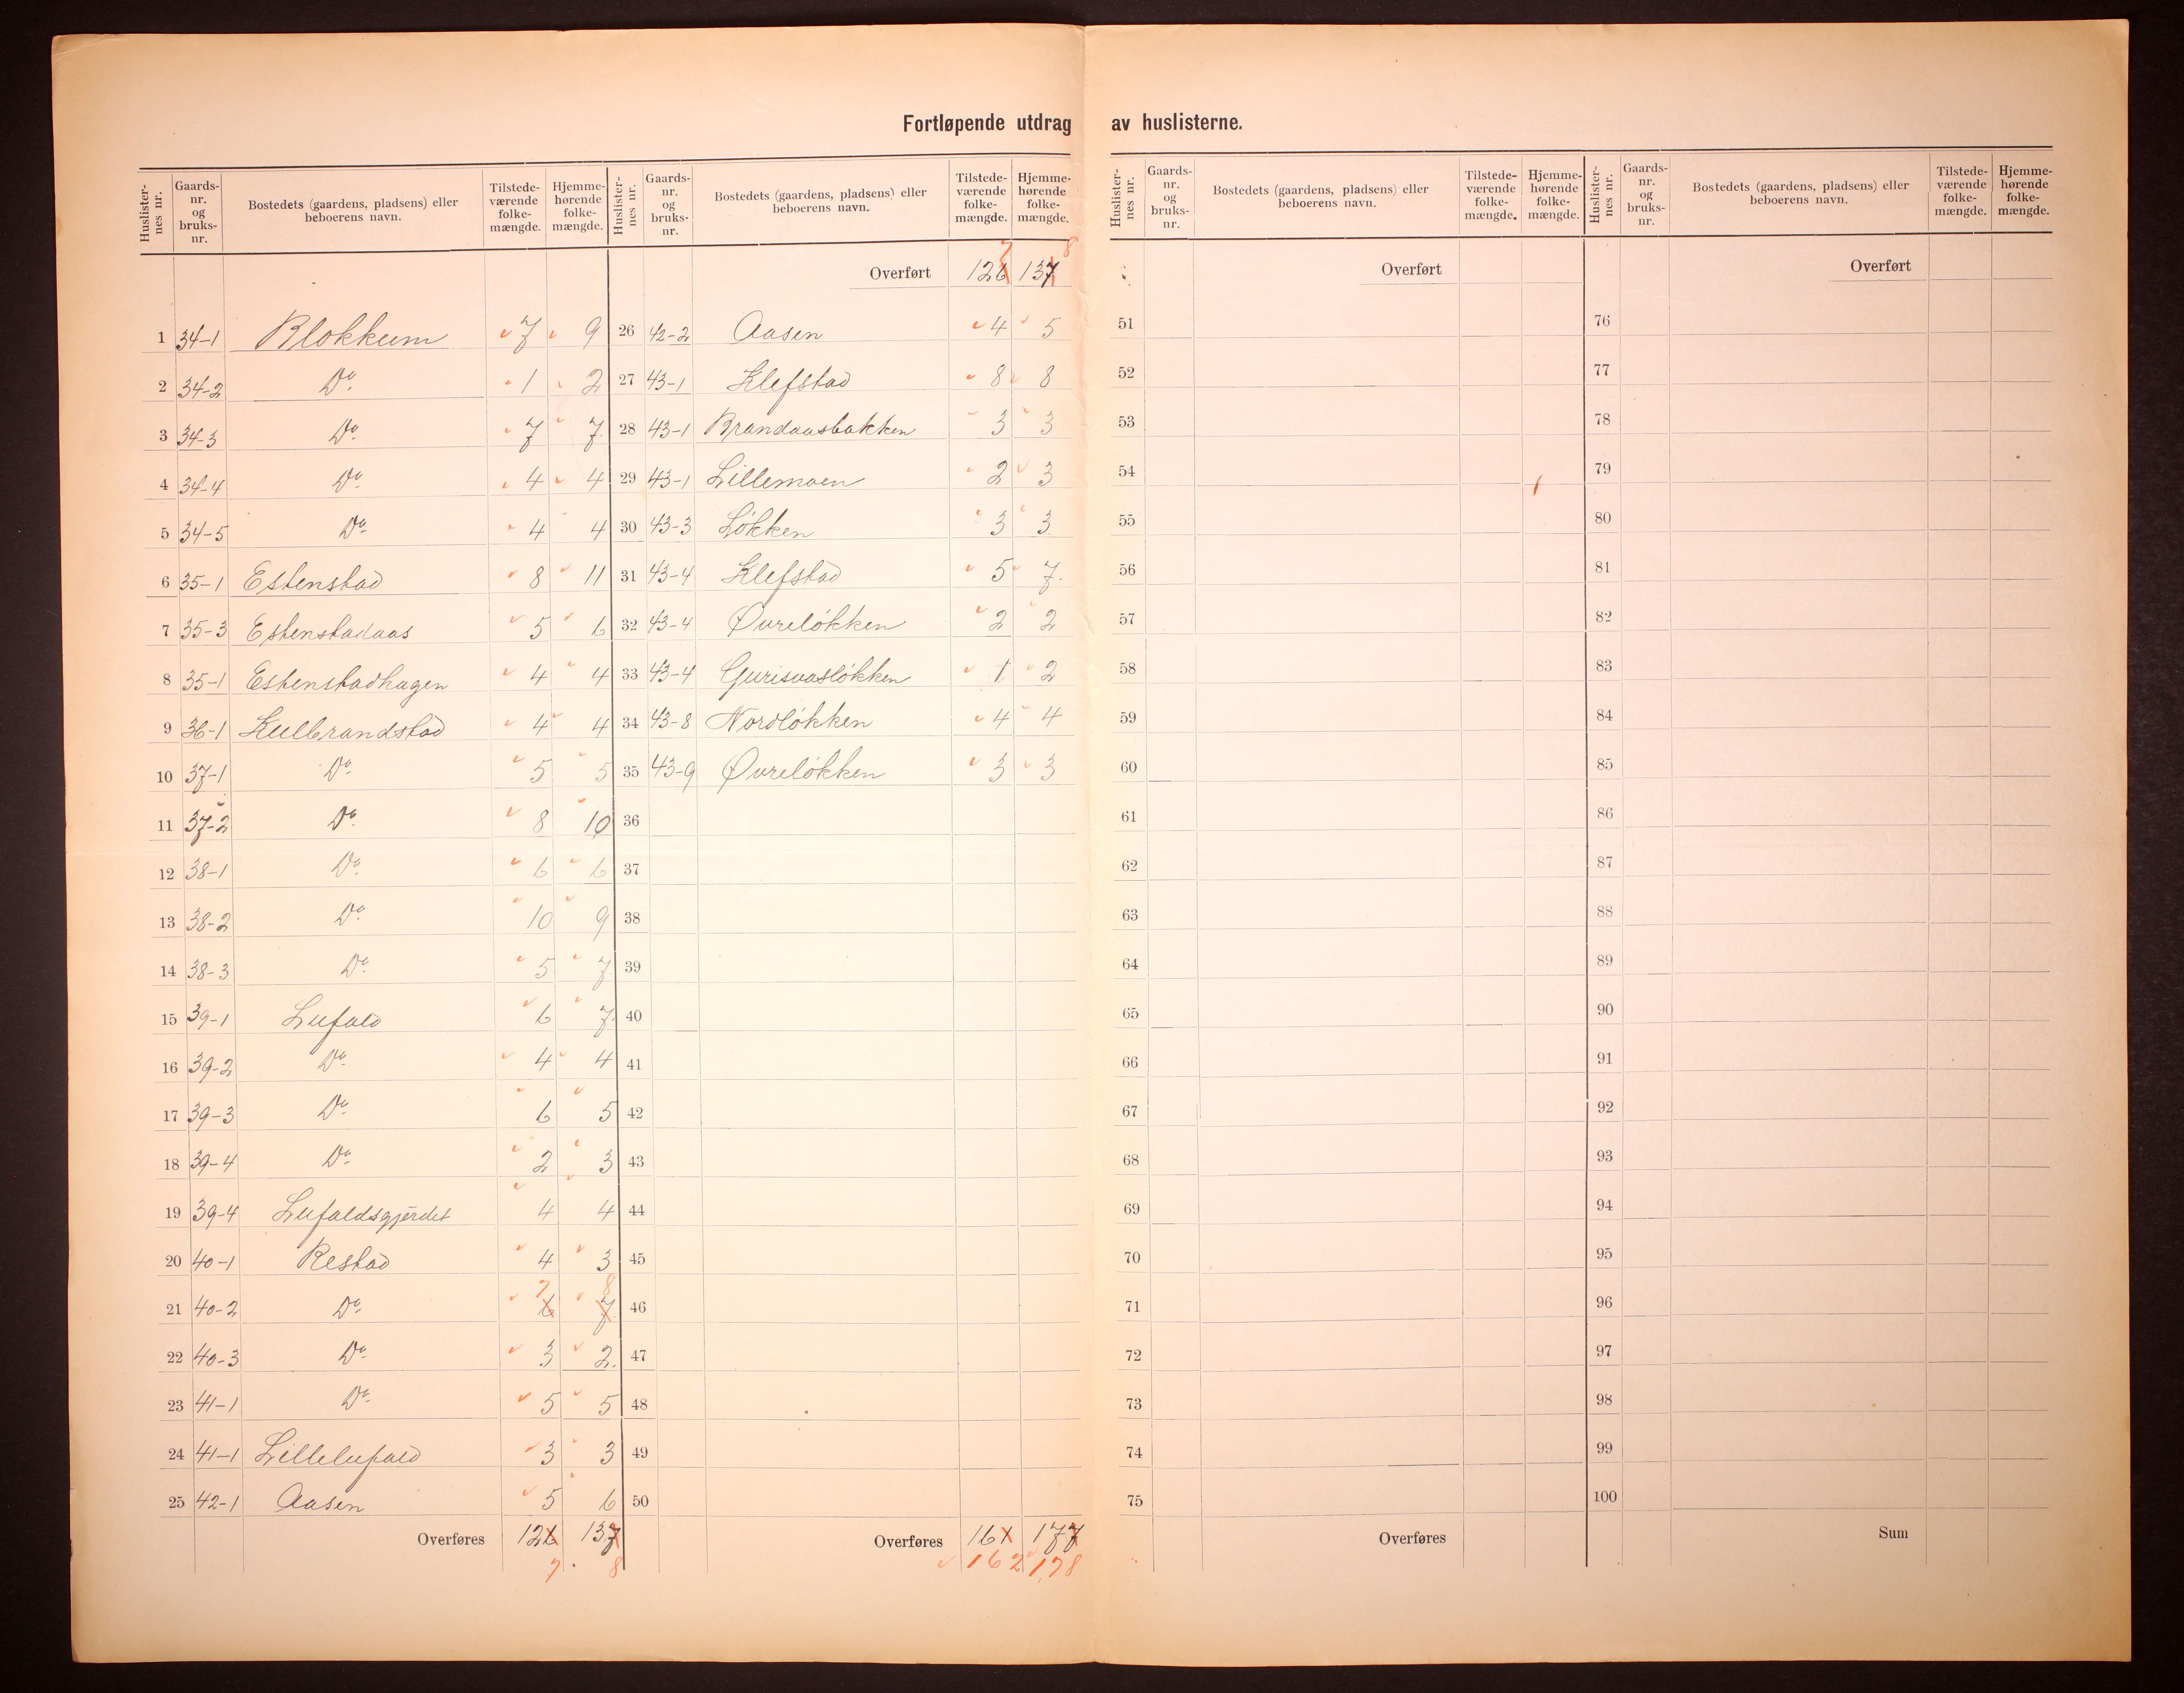 Fortløpende utdrag av huslisterne.
Huslister-nes nr. Gaards-nr. og bruks-nr. Bostedets (gaardens, pladsens) eller beboerens navn. Tilstede-værende folke-mængde. Hjemme-hørende folke-mængde.
1 34-1 Blokkum 7 9
2 34-2 Do 1 2
3 34-3 Do 7 7.
4 34-4 Do 4 4
5 34-5 Do 4 4
6 35-1 Estenstad 8 11
7 35-3 Estenstadaas 5 6
8 35-1 Estenstadhagen 4 4
9 36-1 Kulbrandstad 4 4
10 37-1 Do 5 5
11 37-2 Do 8 10
12 38-1 Do 6 6
13 38-2 Do 10 9
14 38-3 Do 5 7.
15 39-1 Lufald 6 7.
16 39-2 Do 4 4
17 39-3 Do 6 5
18 39-4 Do 2 3
19 39-4 Lufaldsgjerdet 4 4
20 40-1 Restad 4 3
7 8
21 40-2 Do 6 7.
22 40-3 Do 3 2.
23 41-1 Do 5 5
24 41-1 Lillelufald 3 3
25 42-1 Aasen 5 6
Overføres 126 137
7. 8
Huslister-nes nr. Gaards-nr. og bruks-nr. Bostedets (gaardens, pladsens) eller beboerens navn. Tilstede-værende folke-mængde. Hjemme-hørende folke-mængde.
7 8
Overført 126 137
26 42-2 Aasen 4 5
27 43-1 Klefstad 8 8
28 43-1 Brandaasbakken 3 3
29 43-1 Lillemoen 2 3
30 43-3 Løkken 3 3
31 43-4 Klefstad 5 7.
32 43-4 Øvreløkken 2 2
33 43-4 Gurisvasløkken 1 2
34 43-8 Nordløkken 4 4
35 43-9 Øvreløkken 3 3
36
37
38
39
40
41
42
43
44
45
46
47
48
49
50
Overføres 161 177
162 178
Huslister-nes nr. Gaards-nr. og bruks-nr. Bostedets (gaardens, pladsens) eller beboerens navn. Tilstede-værende folke-mængde. Hjemme-hørende folke-mængde.
Overført
51
52
53
54
55
56
57
58
59
60
61
62
63
64
65
66
67
68
69
70
71
72
73
74
75
Overføres
Huslister-nes nr. Gaards-nr. og bruks-nr. Bostedets (gaardens, pladsens) eller beboerens navn. Tilstede-værende folke-mængde. Hjemme-hørende folke-mængde.
Overført
76
77
78
79
80
81
82
83
84
85
86
87
88
89
90
91
92
93
94
95
96
97
98
99
100
Sum